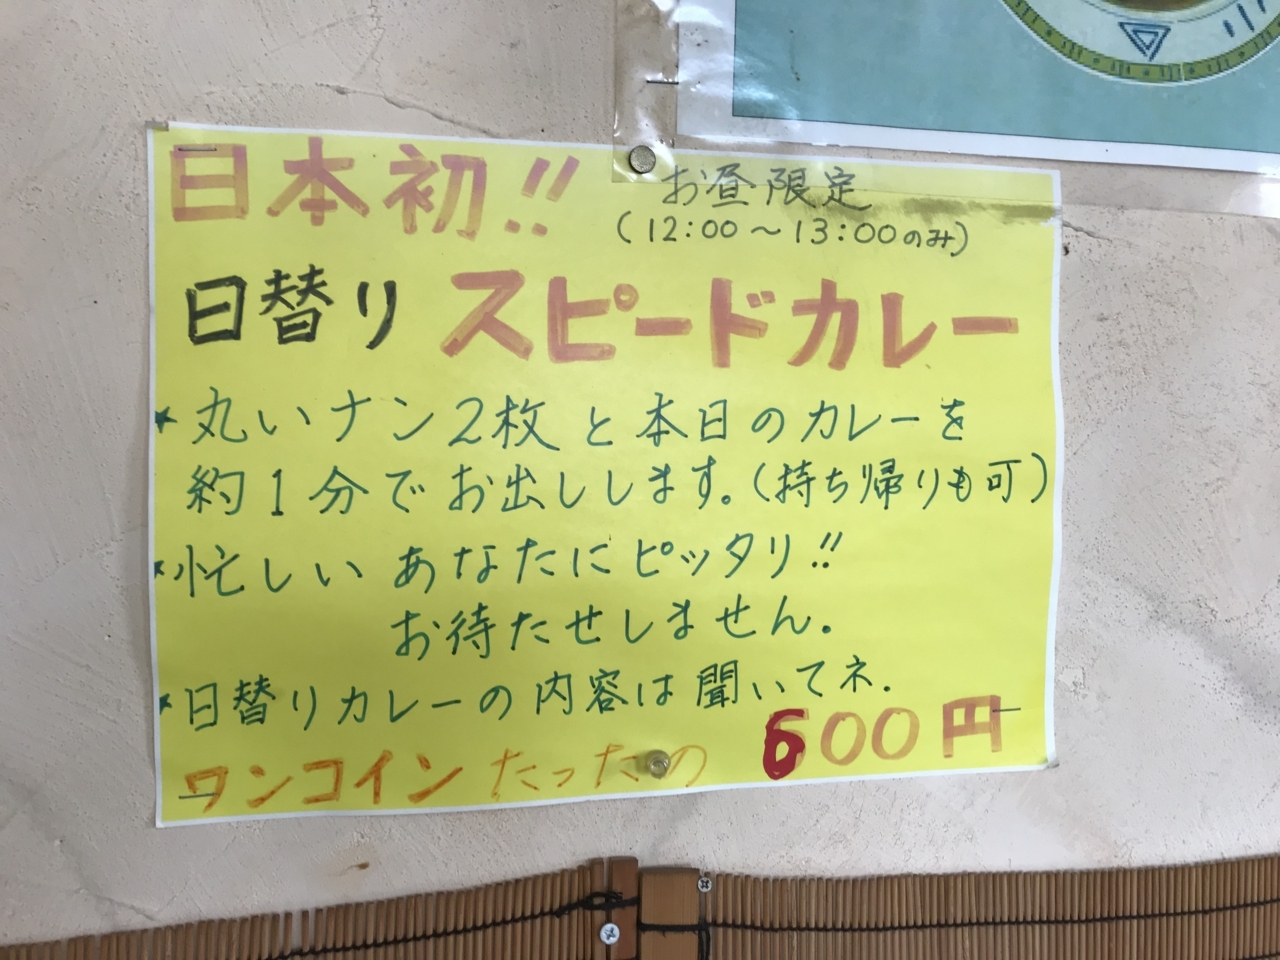 日本初!!
お昼限定
(12:00～13:00のみ)
日替り スピードカレー
★丸いナン2枚と本日のカレーを
約1分でお出しします。(持ち帰りも可)
★忙しい あなたにピッタリ!!
お待たせしません.
★日替りカレーの内容は聞いてネ.
ワンコイン たったの 600円